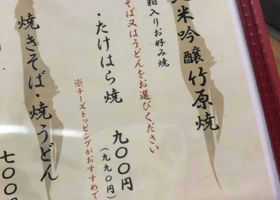 米吟醸竹原焼
粕入りお好み焼
そば又はうどんをお選びください
・たけはら焼
九〇〇円
(九九〇円)
※チーズトッピングがおすすめで
焼きそば・焼うどん
七〇〇